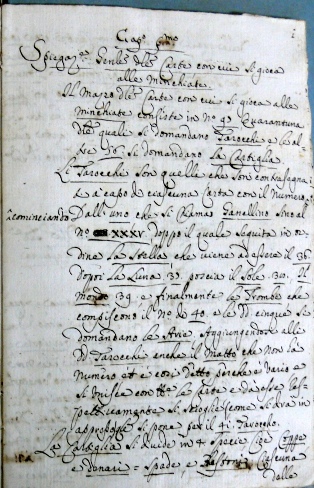 Cap.º p.mo
Spiegaz.ne Genle delle Carte con cui si gioca
alle Minchiate
Il Mazzo delle Carte con cui si gioca alle
minchiate consiste in No 97 Quarantuna
delle quali si domandano Tarocchi e le al
tre 56 si domandano La Cartiglia
Li Tarocchi son quelle che son contrasegna
te a capo di ciascuna Carta con il Numero,
cominciando
Dall' uno che si chiama Ganellino sino al
No XXXV. doppo il quale seguita in or
dine la Stella che viene ad essere il 36
Dopoi la Luna 37. poscia il Sole 38. Il
mondo 39. e finalmente le Trombe che
compiscono il No do 40. e le dd. cinque si
domandano le Arie. Aggiungendosi alli
dd. Tarocchi anche il Matto che non ha
Numero et è così detto perche e vario e
si unisce con tte. le carte e
si pone per il 41. Tarocho.
La Cartiglia si divide in 4 Specie cioè Coppe
e Denari = Spade, e Bastoni Ciascuna
Dalle